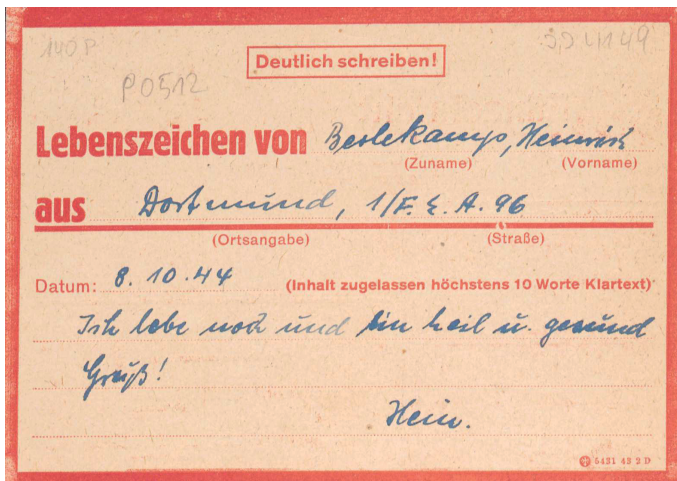 140P
Deutlich schreiben!
P0512
Lebenszeichen von Berlekamp, Heinrich
(Zuname) (Vorname)
aus Dortmund, 1/F. E. A. 96
(Ortsangabe) (Straße)
Datum: 8. 10. 44 (Inhalt zugelassen höchstens 10 Worte Klartext)
Ich lebe noch und bin heil u. gesund
Gruß!
Hein.
5421 43 2 D